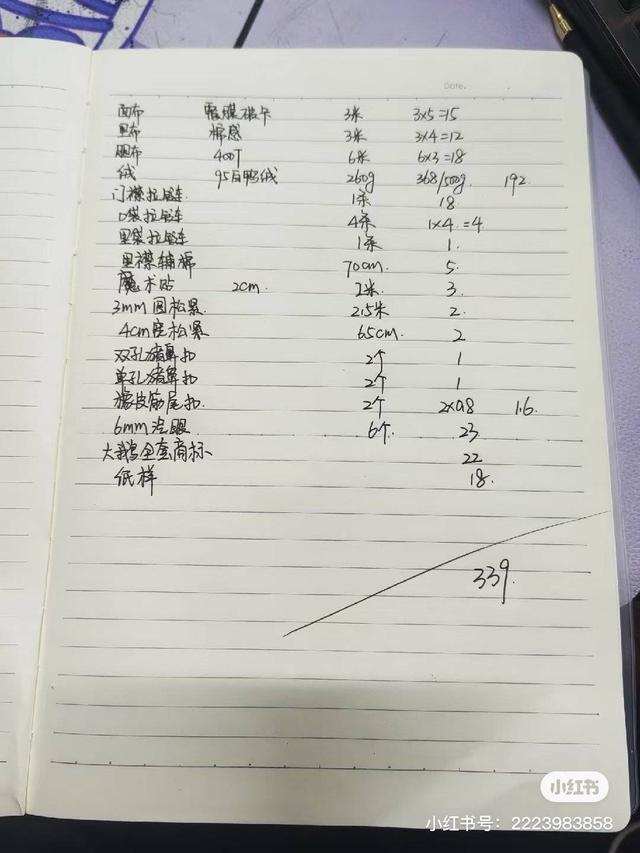 Date.
面布 覆膜梭卡 3米 3×5=15
里布 棉感 3米 3×4=12
胆布 400T 6米 6×3=18
绒 95白鸭绒 260g 368/500g 192
门襟拉链. 1条 18
口袋拉链 4条 1×4.=4
里袋拉链 1条 1.
里襟辅棉 70cm. 5.
魔术贴 2cm. 1米 3.
3mm圆松紧 2.5米 2.
4cm宽松紧 65cm. 2
双孔猪鼻扣 2个 1
单孔猪鼻扣 2个 1
橡皮筋尾扣. 2个 2×0.8 1.6.
6mm汽眼 6个. 23
大鹅全套商标 22
纸样 18.
339.
小红书
小红书号：2223983858